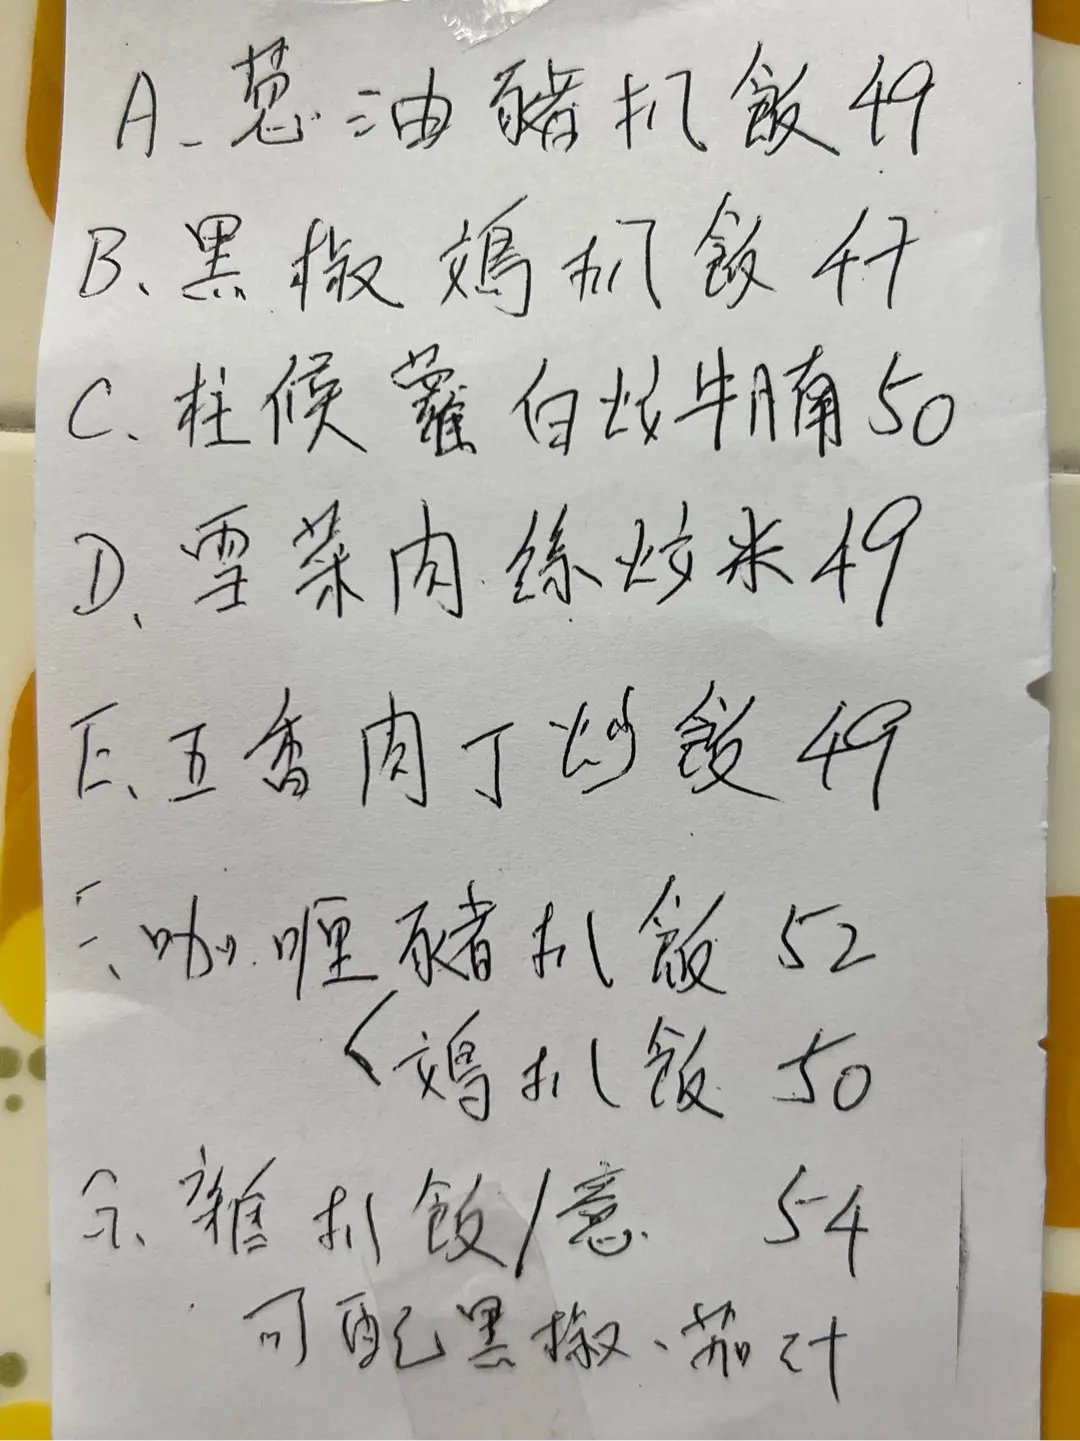 A. 葱油豬扒飯 49
B. 黑椒鸡扒飯 47
C. 柱候蘿白炆牛腩 50
D. 雪菜肉絲炒米 49
E. 五香肉丁炒飯 49
F. 咖喱豬扒飯 52
鸡扒飯 50
G. 雜扒飯/意 54
可配黑椒、茄汁